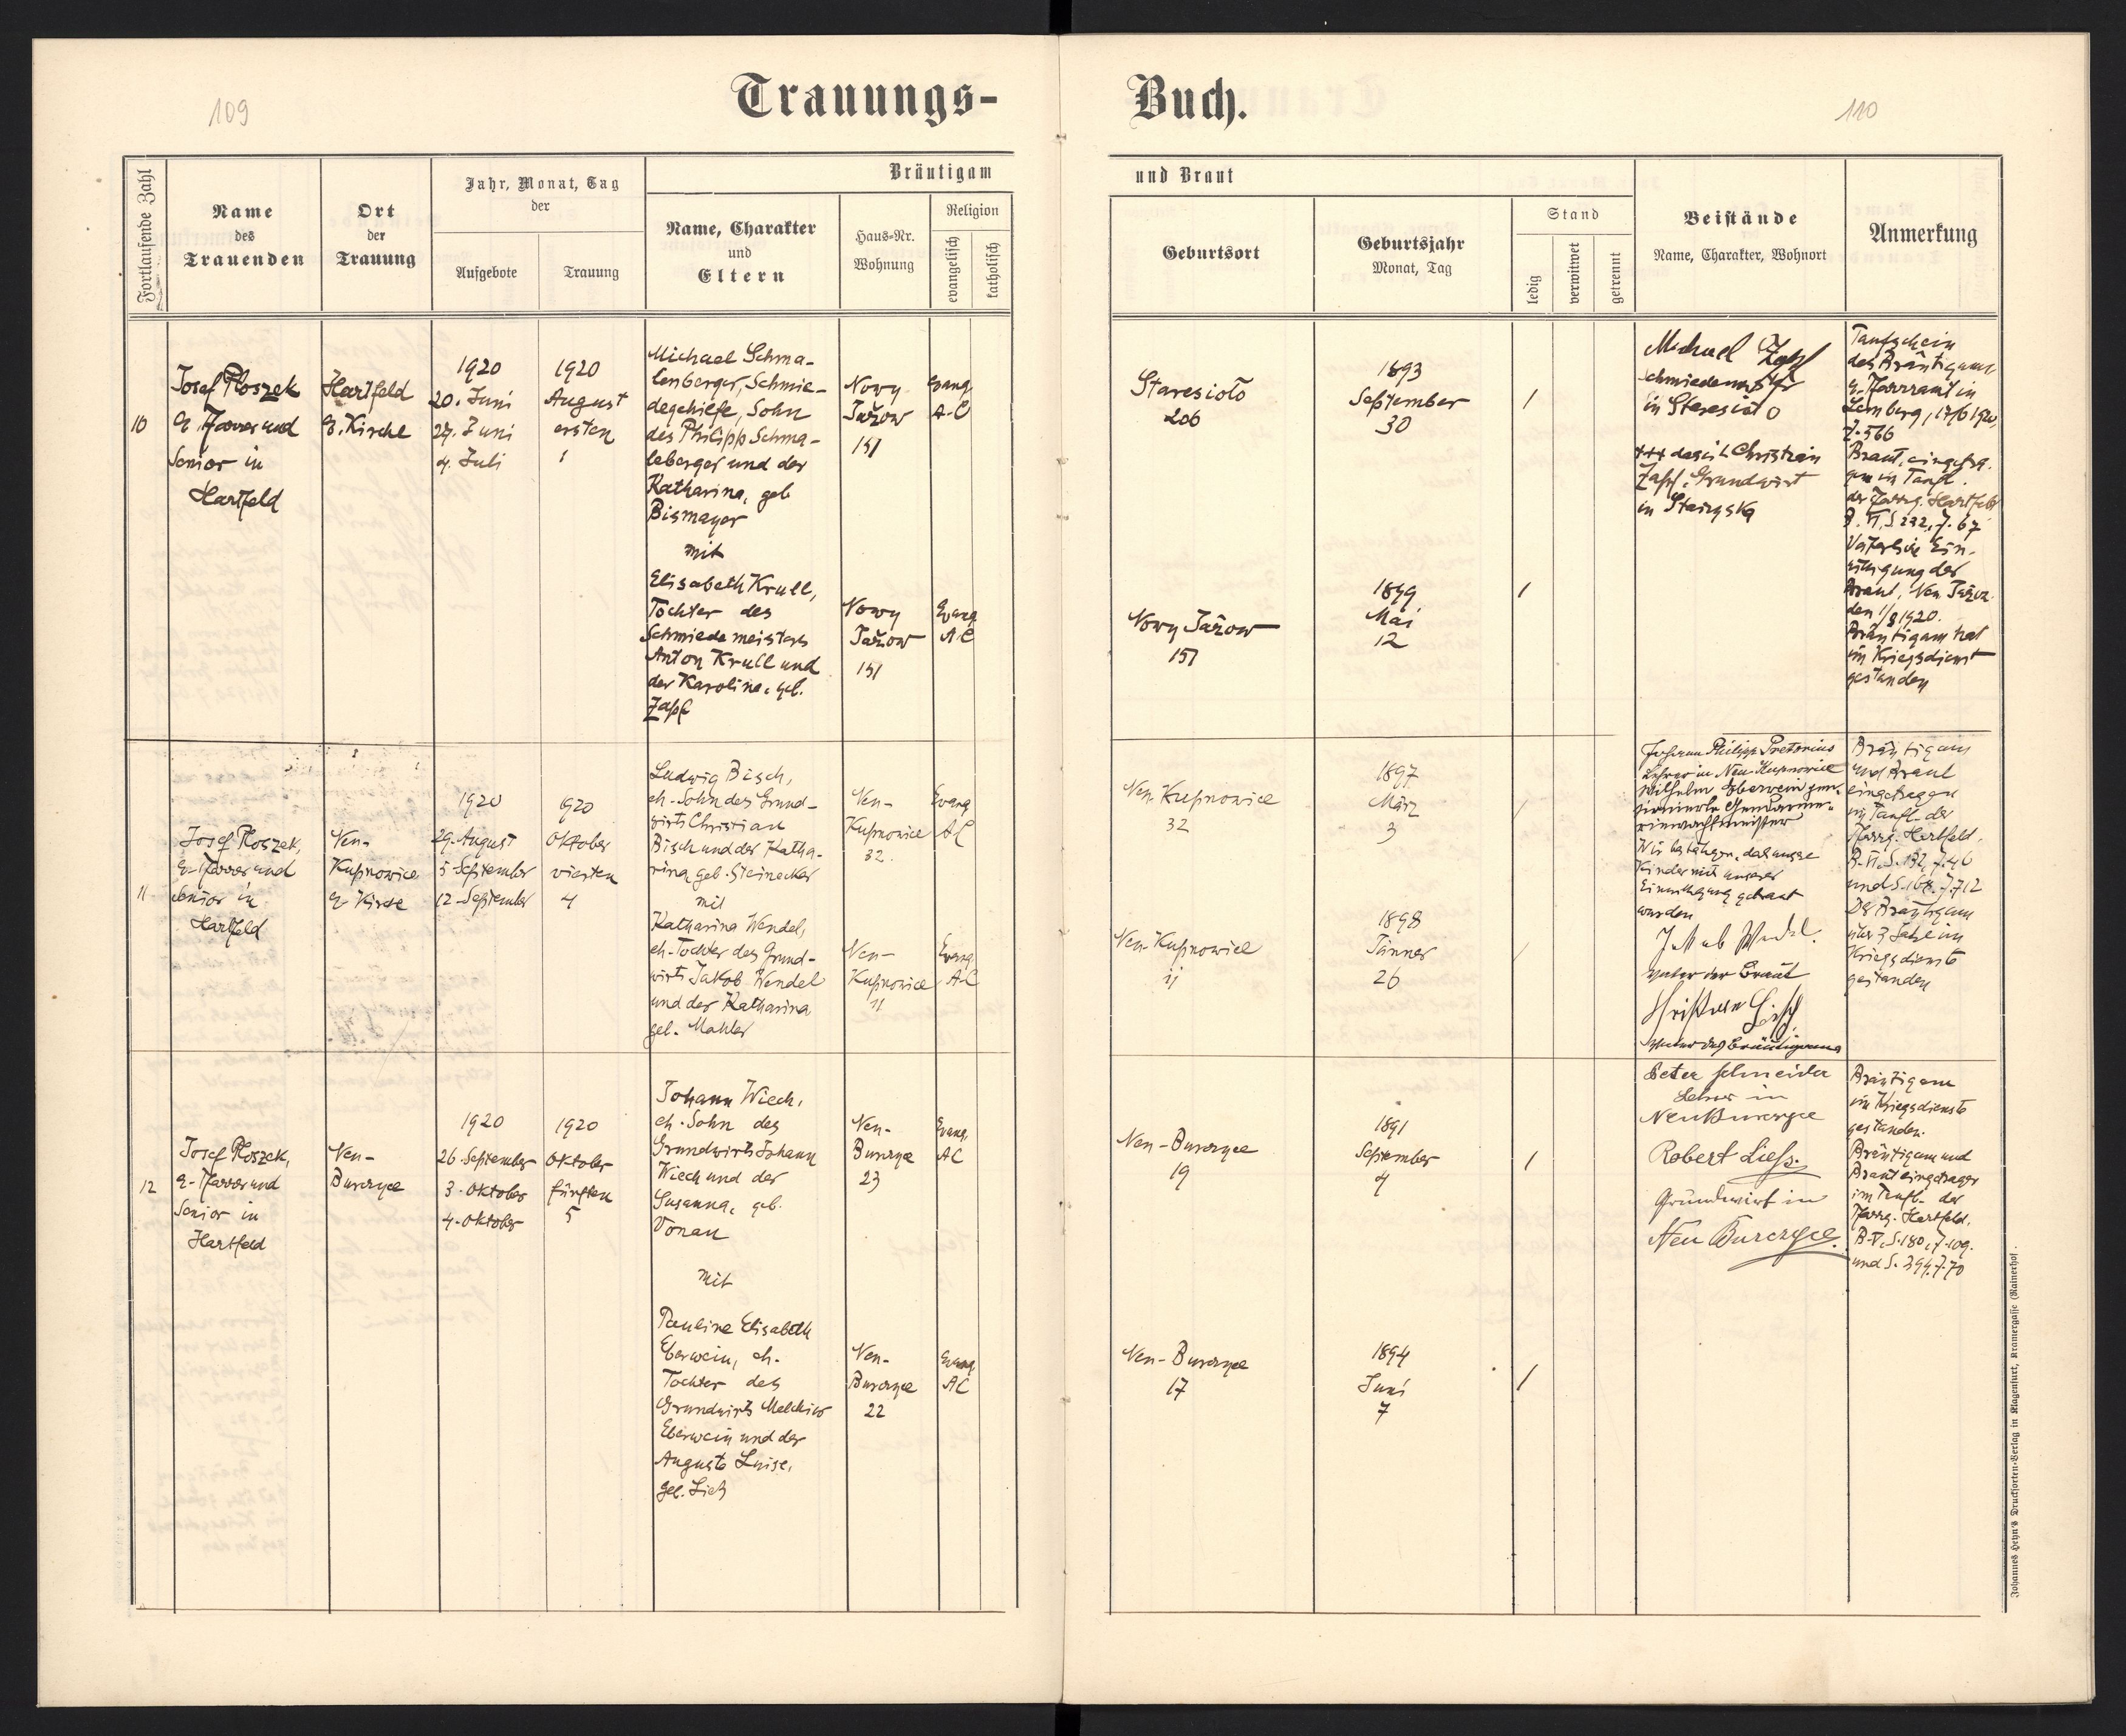 109
Trauungs-
Buch.
110
Fortlaufende Zahl
Name
des
Trauenden
Ort
der
Trauung
Jahr, Monat, Tag
der
Aufgebote
Trauung
Bräutigam
Name, Charakter
und
Eltern
Haus-Nr.
Wohnung
Religion
evangelisch
katholisch
und Braut
Geburtsort
Geburtsjahr
Monat, Tag
Stand
ledig
verwitwet
getrennt
Beistände
Name, Charakter, Wohnort
Anmerkung
10
Josef Ploszek
e. Pfarrer und
Senior in
Hartfeld
Hartfeld
e. Kirche
1920
20. Juni
27. Juni
4. Juli
1920
August
ersten
1
Michael Schma-
lenberger, Schmie-
degehilfe, Sohn
des Philipp Schma-
leberger und der
Katharina, geb
Bismayer
mit
Elisabeth Krull,
Tochter des
Schmiedemeisters
Anton Krull und
der Karoline, geb.
Zapf
Nowy
Jažow
151
Evang.
A-C
Nowy
Jažow
151
Evang
A.C
Staresioło
206
1893
September
30
/
Nowy Jažow
151
1899
Mai
12
/
Michael Zapf
Schmiedemeister
in Staresioło
+++ Christian
Zapf, Grundwirt
in
Taufschein
des Bräutigams
e. Pfarramt in
Lemberg, 17/6 1920,
Z. 566
Braut, eingetra-
gen in Taufb.
der Pfarrg. Hartfeld
B. VI, S. 232, Z. 67
Väterliche Ein-
willigung der
Braut, Neu Jažow
den 1/8 1920.
Bräutigam hat
im Kriegsdienst
gestanden
11
Josef Ploszek,
e. Pfarrer und
Senior in
Hartfeld
Neu-
Kupnowice
e. Kirche
1920
29. August
5 September
12 September
1920
Oktober
vierten
4
Ludwig Bisch,
eh. Sohn des Grund-
wirts Christian
Bisch und der Katha-
rina, geb. Steinacker
mit
Katharina Wendel,
eh. Tochter des Grund-
wirts Jakob Wendel
und der Katharina
geb. Mahler
Neu-
Kupnowice
32.
Evang
AC
Neu-
Kupnowice
11
Evang
AC
Neu-Kupnowice
32
1897
März
3
/
Neu-Kupnowice
11
1898
Jänner
26
/
Johann Philipp Pretorius
Lehrer in Neu Kupnowice
Wilhelm Oberwein pen-
sionierter Gendarme-
riewachtmeister
Wir bestätigen, daß unsere
Kinder mit unserer
Einwilligung getraut
wurden
Jakob Wendel.
Vater der Braut
Christian Bisch
Vater des Bräutigams
Bräutigam
und Braut
eingetragen
in Taufb. der
Pfarrg. Hartfeld.
B. VI, S. 132, Z. 46
und S. 168, Z. 712
Der Bräutigam
über 3 Jahre im
Kriegsdienste
gestanden
12
Josef Ploszek,
e. Pfarrer und
Senior in
Hartfeld
Neu-
Burczyce
1920
26. September
3. Oktober
4. Oktober
1920
Oktober
fünften
5
Johann Wiech,
eh. Sohn des
Grundwirts Johann
Wiech und der
Susanna, geb.
Vonau
mit
Pauline Elisabeth
Eberwein, eh.
Tochter des
Grundwirts Melchior
Eberwein und der
Auguste Luise,
geb. Lieb
Neu-
Burczyce
23
Evang.
AC
Neu-
Burczyce
22
Evang.
AC
Neu-Burczyce
19
1891
September
4
/
Neu-Burczyce
17
1894
Juni
7
/
Peter Schneider
Lehrer in
Neu Burczyce
Robert Liefs.
Grundwirt in
Neu Burczyce.
Bräutigam
im Kriegsdienste
gestanden.
Bräutigam und
Braut eingetragen
im Taufb. der
Pfarrg. Hartfeld.
B. V, S. 180, Z. 109.
und S. 394, Z. 70
Johannes Heyn's Drucksorten-Verlag in Klagenfurt, Kramergasse (Mainerhof).